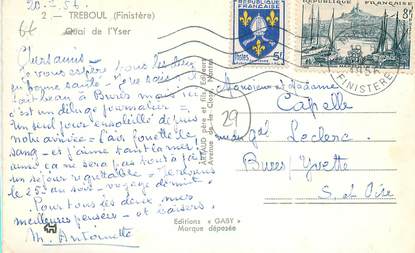 20-8-56.
2 - TREBOUL (Finistère)
Quai de l'Yser
Chers amis -
J'vous espère tous les deux
en bonne santé -
fait beau à Bures mais ici
c'est un déluge journalier -
un seul jour ensoleillé depuis
notre arrivée - l'air fouette le
sang - et j'aime tant la mer!
ça ne sera pas tout à fait
un séjour regrettable - Je
le 25 au soir - voyage de nuit -
Pour tous les deux mes
meilleures pensées - et baisers.
M. Antoinette
ARTAUD père et fils, Editeurs
Avenue de la Close - Nantes
POSTES
REPUBLIQUE FRANÇAISE
5F
8F
FINISTERE
Monsieur et Madame
Capelle
rue gal Leclerc
Bures s/Yvette
S. et Oise
29
Editions « GABY »
Marque déposée